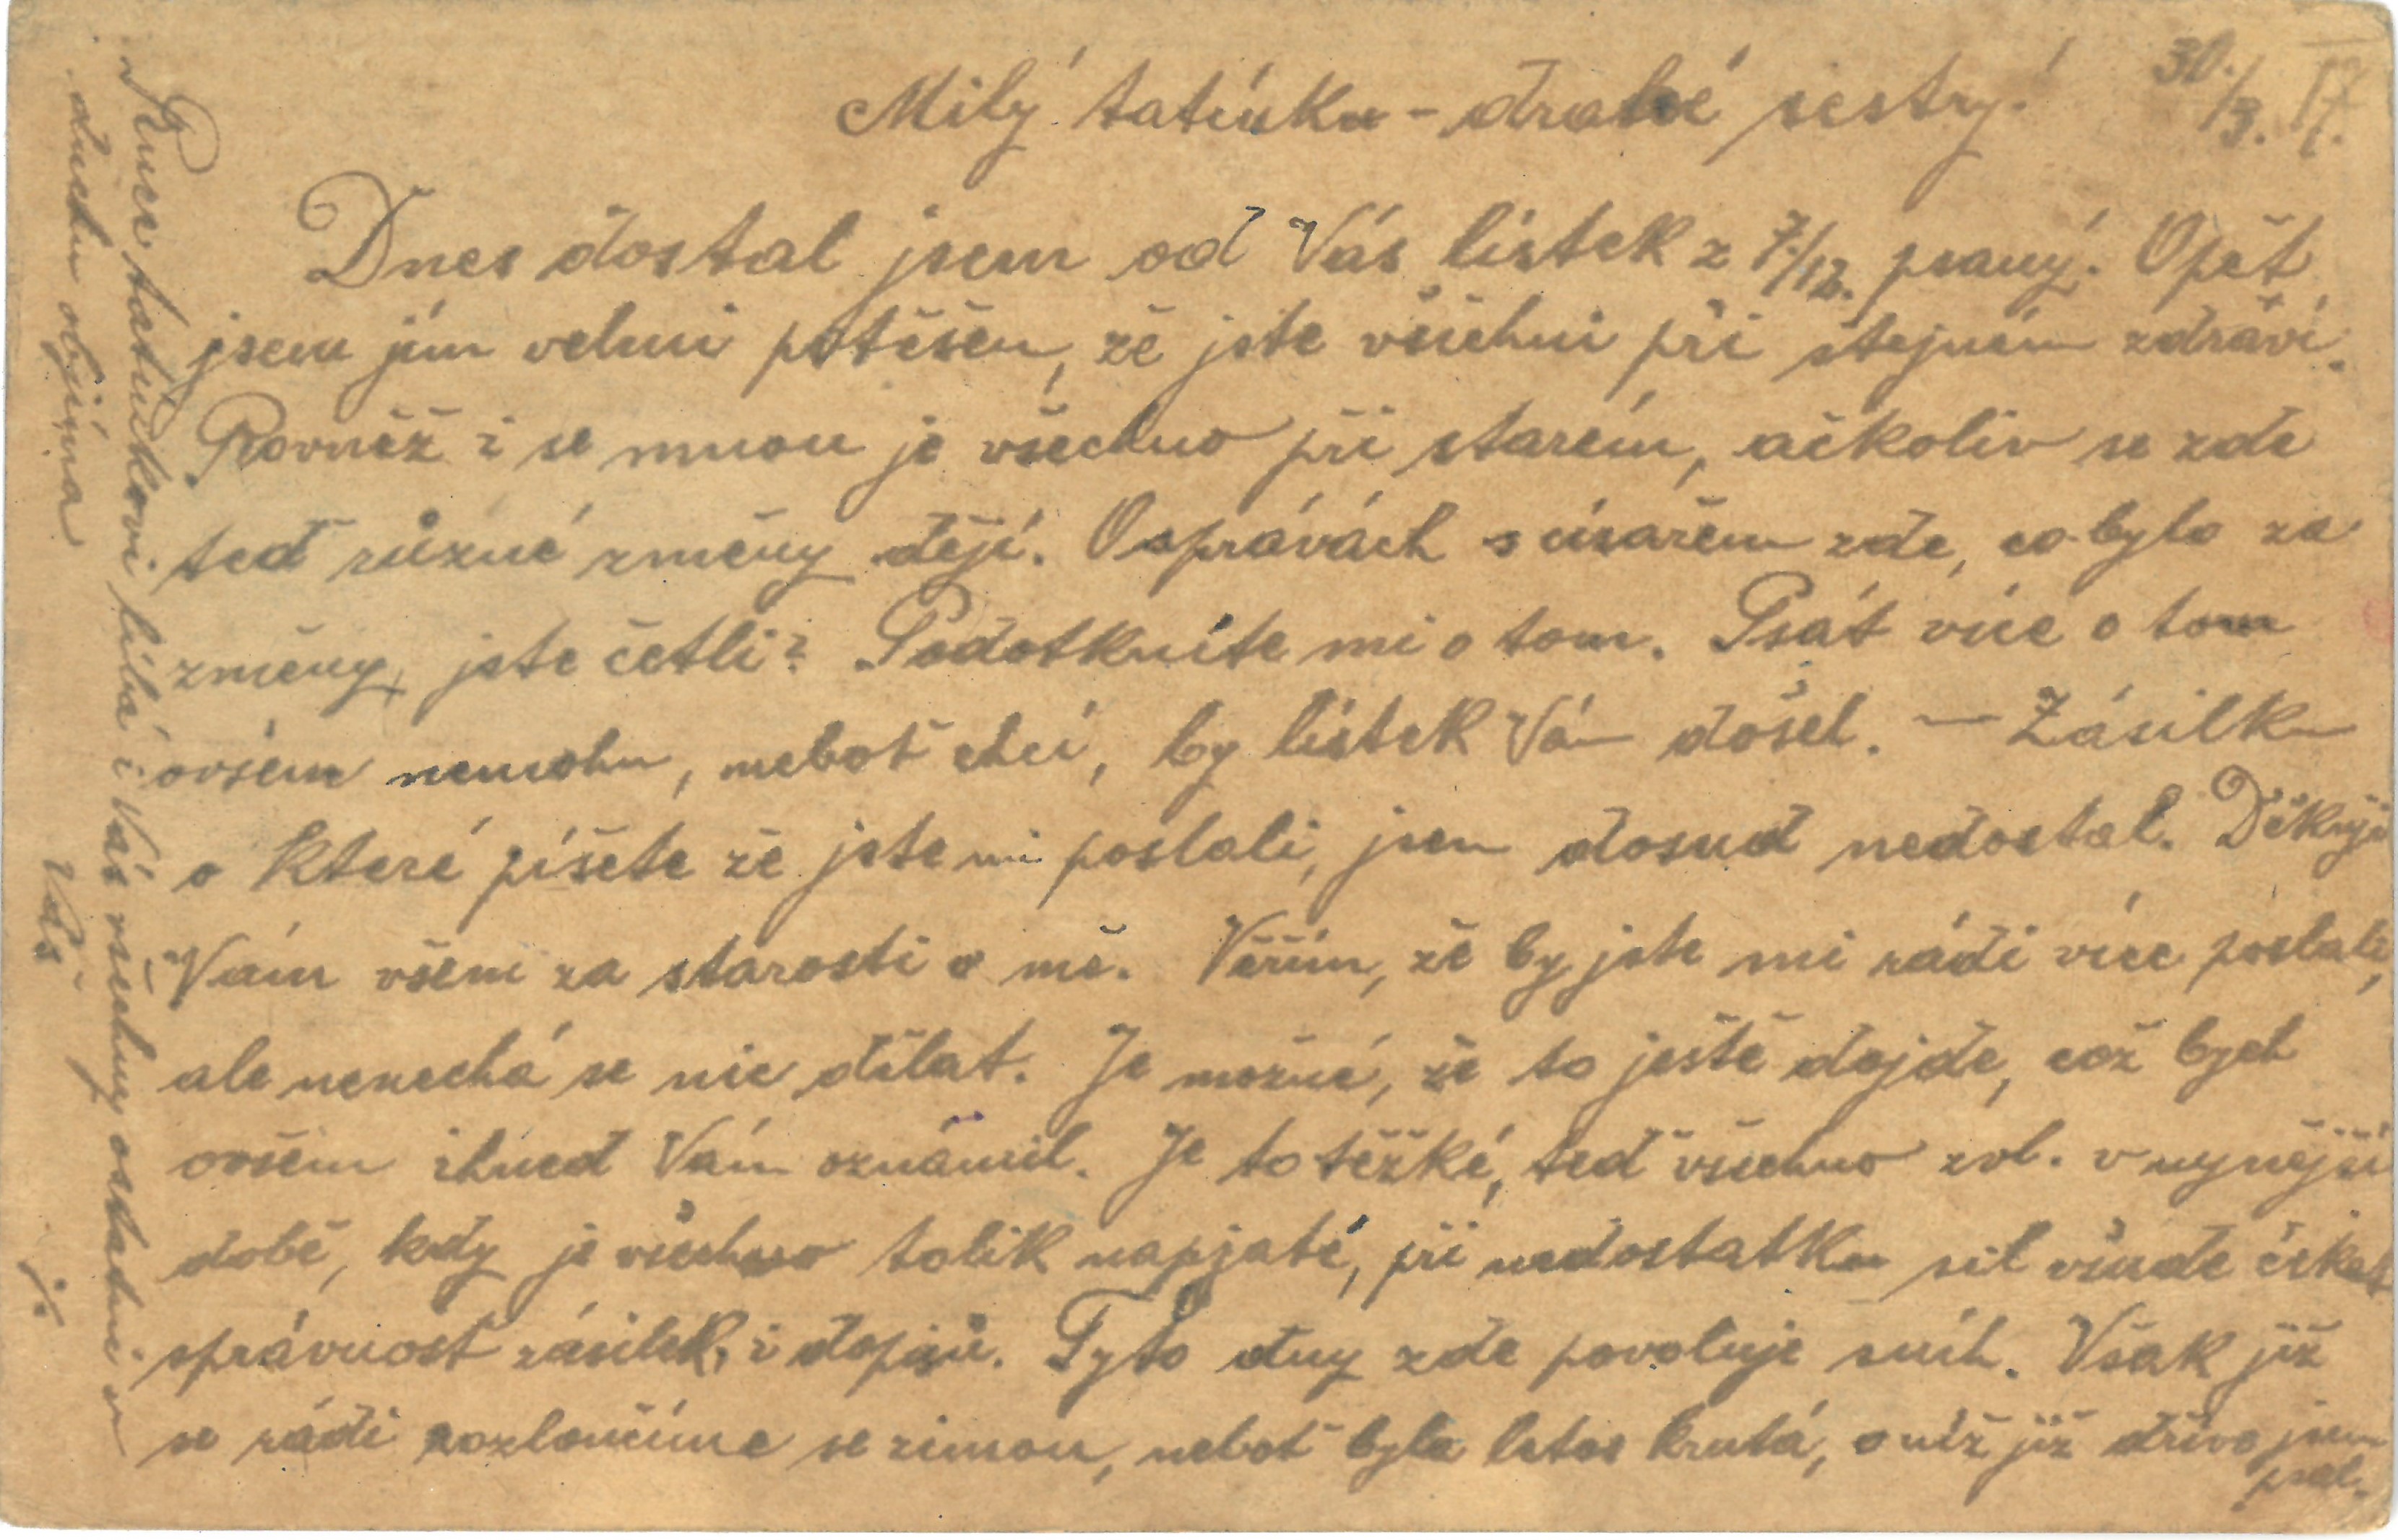 30./3. 17.
Milý tatínku - drahé sestry!
Dnes dostal jsem od Vás lístek z 7./12. psaný. Opět
jsem jím velmi potěšen, že jste všichni při stejném zdraví.
Rovněž i se mnou je všechno při starém, ačkoliv se zde
teď různé změny dějí. O správách s císařem zde, co bylo za
změny, jste četli? Podotkněte mi o tom. Psát více o tom
ovšem nemohu, neboť chci, by lístek Vám došel. — Zásilku
o které píšete že jste mi poslali, jsem dosud nedostal. Děkuji
Vám všem za starosti o mě. Věřím, že by jste mi rádi více poslali,
ale nenechá se nic dělat. Je možné, že to ještě dojde, což bych
ovšem ihned Vám oznámil. Je to těžké, teď všechno zvl. v nynější
době, kdy je všechno tolik napjaté, při nedostatku sil všude čekat
správnost zásilek, i dopisů. Tyto dny zde povoluje sníh. Však již
se rádi rozloučíme se zimou, neboť byla letos krutá, o níž již dříve jsem
psal.
Ruce tatíčkovi líbá i Vás všechny ostatní v
duchu objímá
Váš
J.